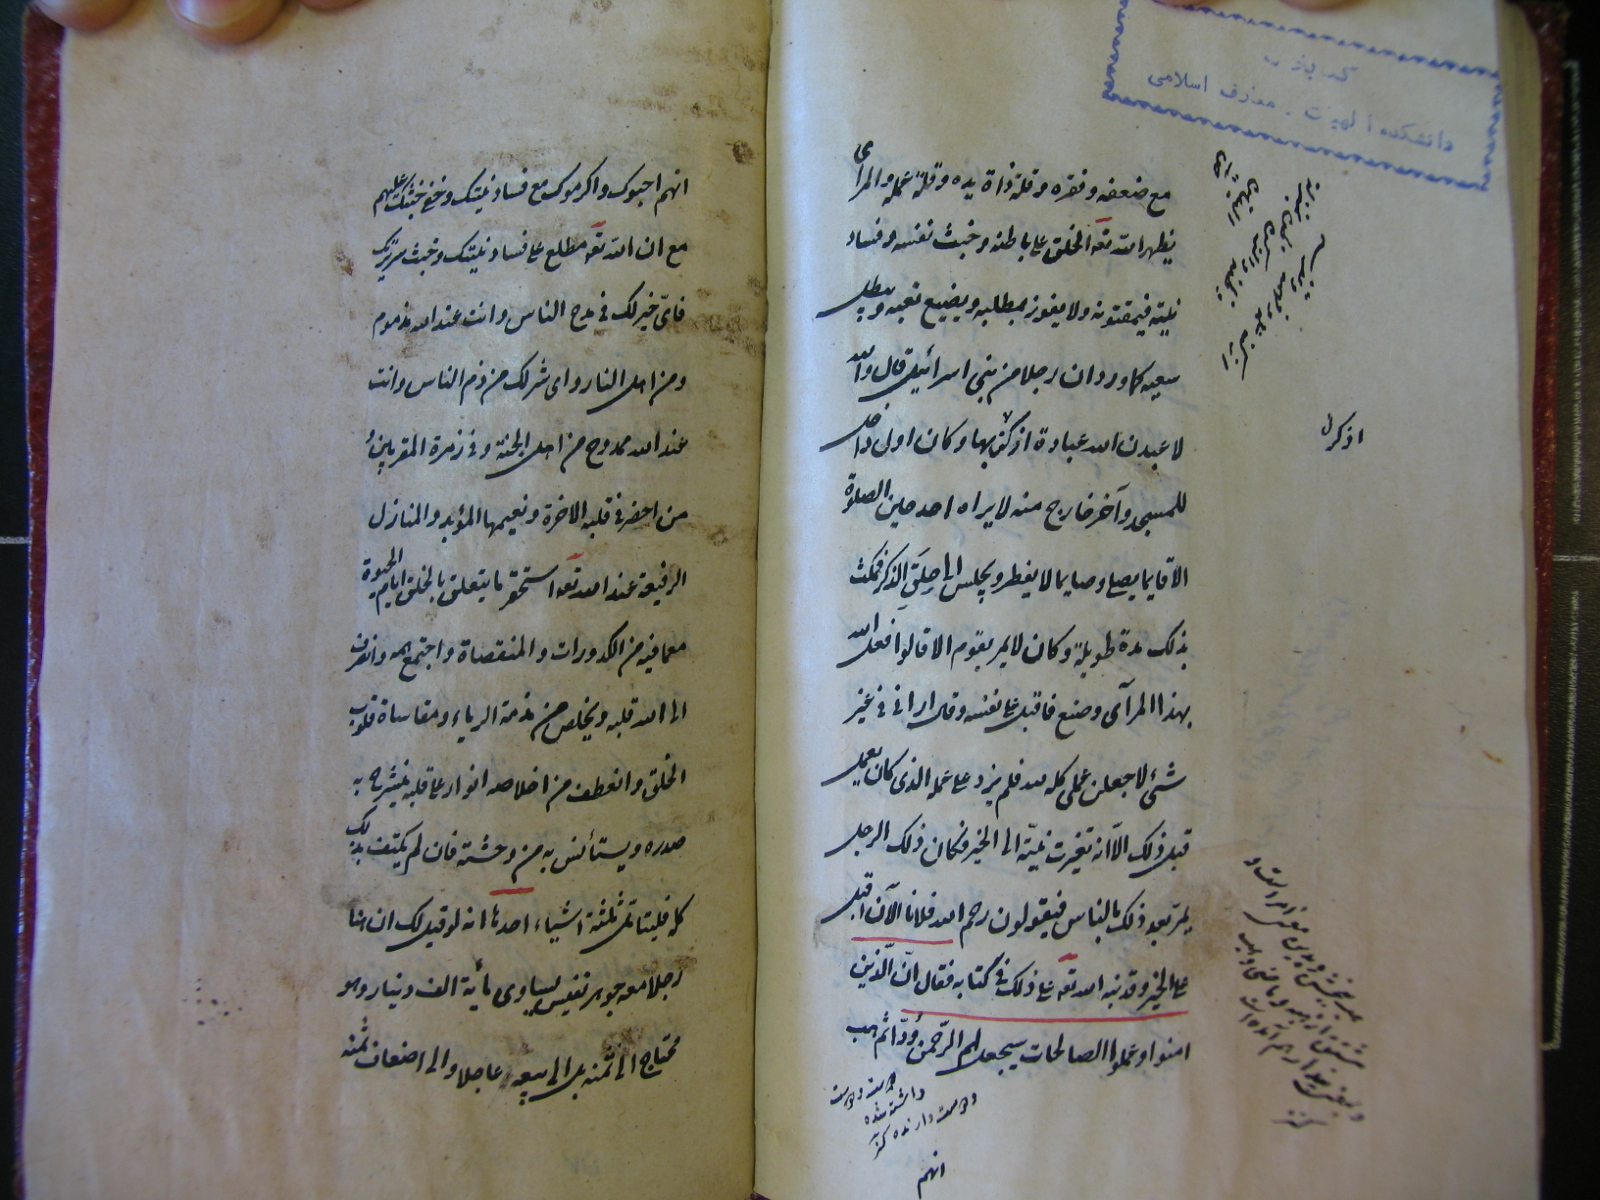 کتابخانه
دانشکده الهیات و معارف اسلامی
مع ضعفه وفقره وقلة ذاة يده وقلة عمله والمرائى
يظهر الله تعه الخلق على باطنه وخبث نفسه وفساد
نيته فيمقتونه ولا يفوز بمطلبه ويضيع تعبه ويبطل
سعيه كما ورد ان رجلا من بنى اسرائيل قال والله
لا عبدن الله عبادة اذكر بها وكان اول داخل
للمسجد وآخر خارج منه لا يراه احد حين الصلوة
الا قايما يصلى وصايما لا يفطر ويجلس الى حلق الذكر فمكث
بذلك مدة طويلة وكان لا يمر بقوم الا قالوا فعل الله
بهذا المرآى وصنع فاقبل على نفسه وقال ارانى فى غير
شئ لاجعلن عملى كله لله فلم يزد على عمله الذى كان يعمل
قبل ذلك الا انه تغيرت نيته الى الخير فكان ذلك الرجل
يمر بعد ذلك بالناس فيقولون رحم الله فلانا الآن اقبل
على الخير وقد نبه الله تعه على ذلك فى كتابه فقال ان الذين
امنوا وعملوا الصالحات سيجعل لهم الرحمن ودا ثم هب
اذكر
داشته شده
انهم
انهم احبوك واكرموك مع فساد نيتك وخفى خبثك عليهم
مع ان الله تعه مطلع على فساد نيتك وخبث سريرتك
فاى خير لك فى مدح الناس وانت عند الله مذموم
ومن اهل النار واى شر لك من ذم الناس وانت
عند الله ممدوح من اهل الجنة وفى زمرة المقربين
من احضر فى قلبه الاخرة ونعيمها المؤبد والمنازل
الرفيعة عند الله تعه استحقر ما يتعلق بالخلق ايام الحيوة
معافيه من الكدورات والمنقصاة واجتمع همه وانصرف
الى الله قلبه ويخلص من مذمة الرياء ومقاساة قلوب
الخلق وانعطف من اخلاصه انوار على قلبه ينشرح به
صدره ويستأنس به من وحشته فان لم يكتف بذلك
كله فليتامل ثلثة اشياء احدها انه لو قيل لك ان هنا
رجلا معه جوهر نفيس يساوى مائة الف دينار وهو
محتاج الى ثمنه بل الى بيعه عاجلا والى اضعاف ثمنه